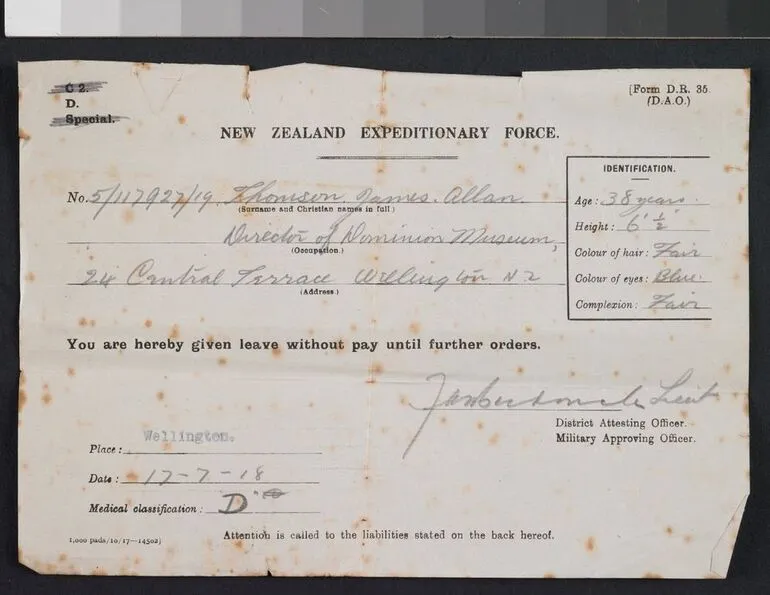 C 2.
D.
Special.
[Form D.R. 35
(D.A.O.)
NEW ZEALAND EXPEDITIONARY FORCE.
No. 5/117927/19 Thomson James Allan
(Surname and Christian names in full)
Director of Dominion Museum,
(Occupation.)
24 Central Terrace Wellington NZ
(Address.)
IDENTIFICATION.
Age: 38 years.
Height: 6' ½"
Colour of hair: Fair
Colour of eyes: Blue.
Complexion: Fair
You are hereby given leave without pay until further orders.
Lieut
District Attesting Officer.
Military Approving Officer.
Place: Wellington.
Date: 17-7-18
Medical classification: D
1,000 pads/10/17—14502]
Attention is called to the liabilities stated on the back hereof.